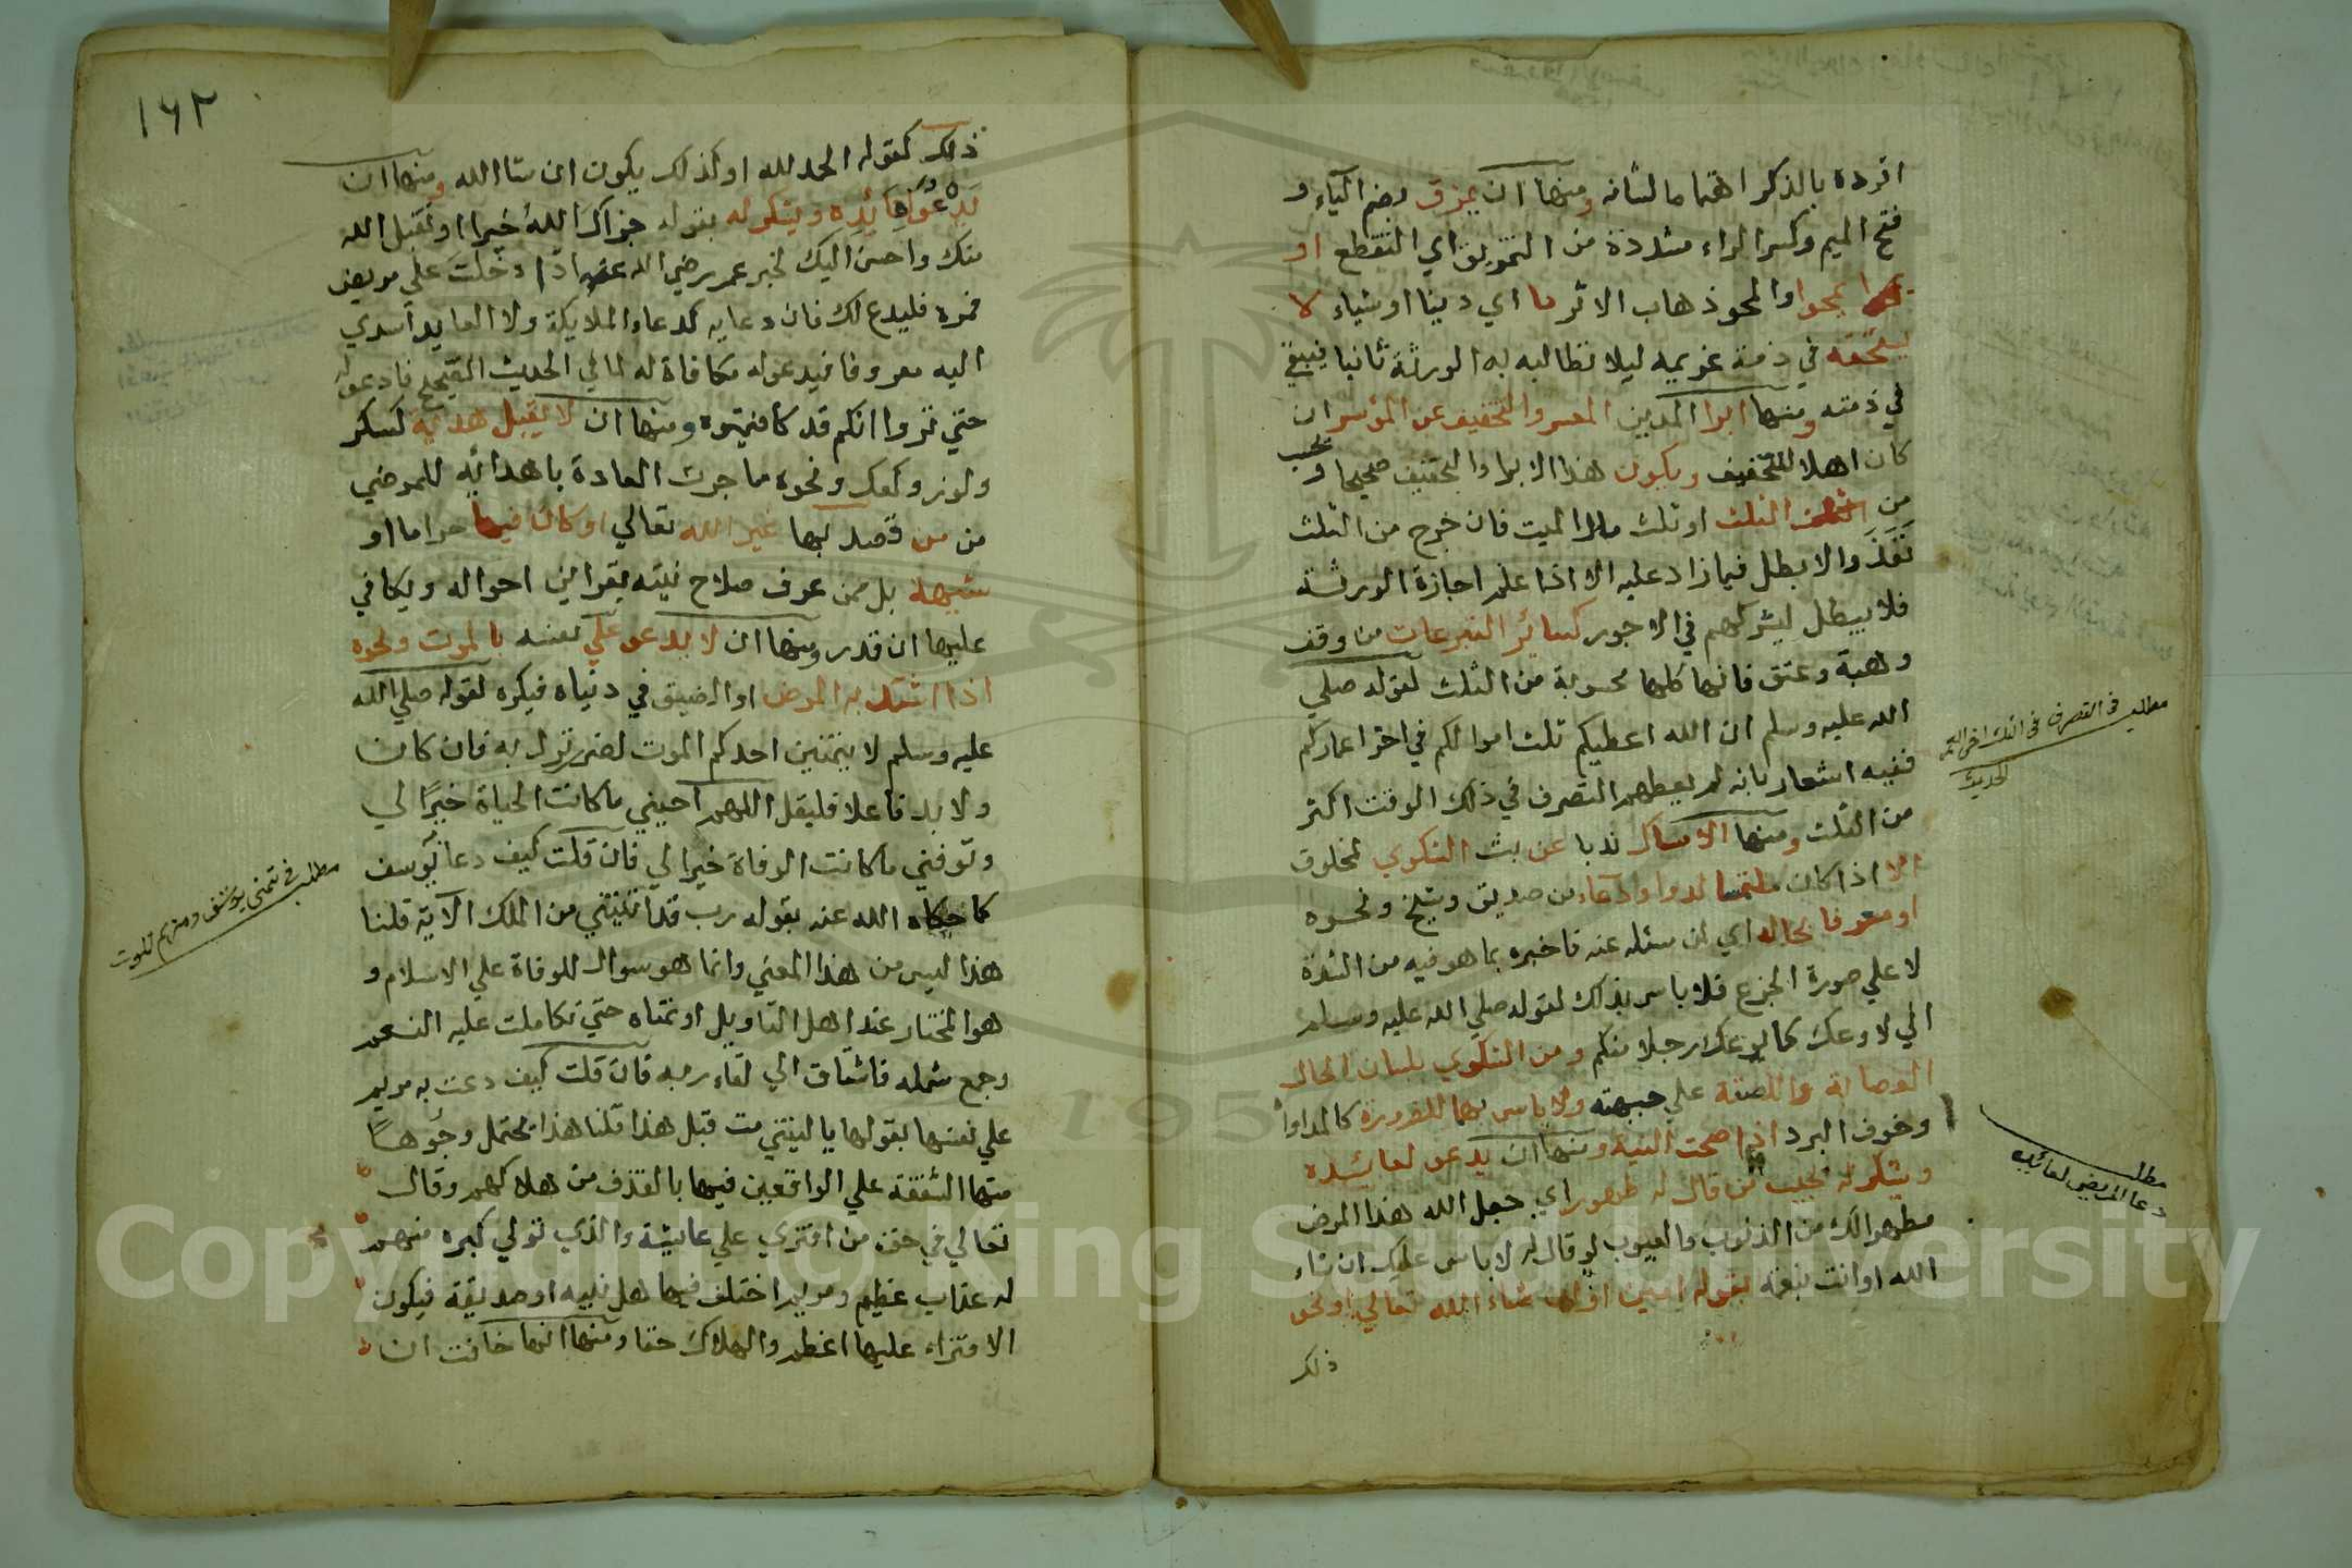 افرده بالذكر اهتماما لشانه ومنها ان يمزق بضم الياء و
فتح الميم وكسر الراء مشددة من التمزيق اي التقطع او
يمحوا والمحو ذهاب الاثر ما اي دينا او شياء لا
يستحقه في ذمة غريمه ليلا تطالبه به الورثة ثانيا فيبقي
في ذمته ومنها ابرا المدين المعسر والتخفيف عن المؤسر ان
كان اهلا للتخفيف ويكون هذا الابراء والتخفيف صحيحا و يحسب
من الثلث او ثلث مال الميت فان خرج من الثلث
نَفَذَ والا بطل فيما زاد عليه الا اذا علم اجازة الورثة
فلا يبطل ليشركهم في الاجور كسائر التبرعات من وقف
وهبة وعتق فانها كلها محسوبة من الثلث لقوله صلي
الله عليه وسلم ان الله اعطيكم ثلث اموالكم في اخر اعماركم
ففيه اشعار بانه لم يعطهم التصرف في ذلك الوقت اكثر
من الثلث ومنها الامساك ندبا عن بث الشكوي لمخلوق
الا اذا كان ملتمسا لدوا وادعاء من صديق وشيخ ونحوه
او معرفا بحاله اي لمن سئله عنه فاخبره بما هو فيه من الشدة
لا علي صورة الجزع فلا باس بذلك لقوله صلي الله عليه وسلم
اني لاوعك كما يوعك رجلا منكم ومن الشكوي بلسان الحال
العصابة واللصقة علي جبهته ولا باس بهما للضرورة كالمداواة
وخوف البرد اذا صحت النية ومنها ان يدعو لعائده
ويشكر له فيجيب من قال له طهور اي جعل الله هذا المرض
مطهرا لك من الذنوب والعيوب لو قال له لا باس عليك ان شاء
الله او انت بنعمة بقوله امين او ان شاء الله تعالي او نحو
ذلك
مطلب في التصرف في الثلث اخر العمر
الحديث
مطلب
دعا المريض لعائده
١٦٢
ذلك كقوله الحمد لله او كذلك يكون ان شا الله ومنها ان
يَدْعُوَ لِعَائِدِه ويشكر له بقوله جزاك اللهُ خيرا او تقبل الله
منك واحسن اليك لخبر عمر رضي الله عنه اذا دخلت علي مريض
فمره فليدع لك فان دعايه كدعاء الملايكة ولا العايد اسدي
اليه معروفا فيدعو له مكافاة له لما في الحديث الصحيح فادعو له
حتي تروا انكم قد كافئتموه ومنها ان لا يقبل هدية كسكر
ولوز وكعك ونحوه ما جرت العادة باهدائه للمرضي
من من قصد بها غير الله تعالي او كان فيها حراما او
شبهة بل ممن عرف صلاح نيته بقراين احواله ويكافي
عليها ان قدر ومنها ان لا يدعو علي نفسه بالموت ونحوه
اذا اشتد به المرض او الضيق في دنياه فيكره لقوله صلي الله
عليه وسلم لا يتمنين احدكم الموت لضر نزل به فان كان
ولا بد فاعلا فليقل اللهم احييني ما كانت الحياة خيرًا لي
وتوفني ما كانت الوفاة خيرا لي فان قلت كيف دعا يوسف
كما حكاه الله عنه بقوله رب قد اتيتني من الملك الآية قلنا
هذا ليس من هذا المعني وانما هو سوال للوفاة علي الاسلام و
هو المختار عند اهل التاويل او تمناه حتي تكاملت عليه النعم
وجمع شمله فاشتاق الي لقاء ربه فان قلت كيف دعت به مريم
علي نفسها بقولها يا ليتني مت قبل هذا قلنا هذا يحتمل وجوهاً
منها الشفقة علي الواقعين فيها بالقذف من هلاكهم وقال
تعالي في حق من افتري علي عائشة والذي تولي كبره منهم
له عذاب عظيم ومريم اختلف فيها هل نبية او صديقة فيكون
الافتراء عليها اعظم والهلاك حقا ومنها انها خانت ان
مطلب في تمني يوسف ومريم للموت